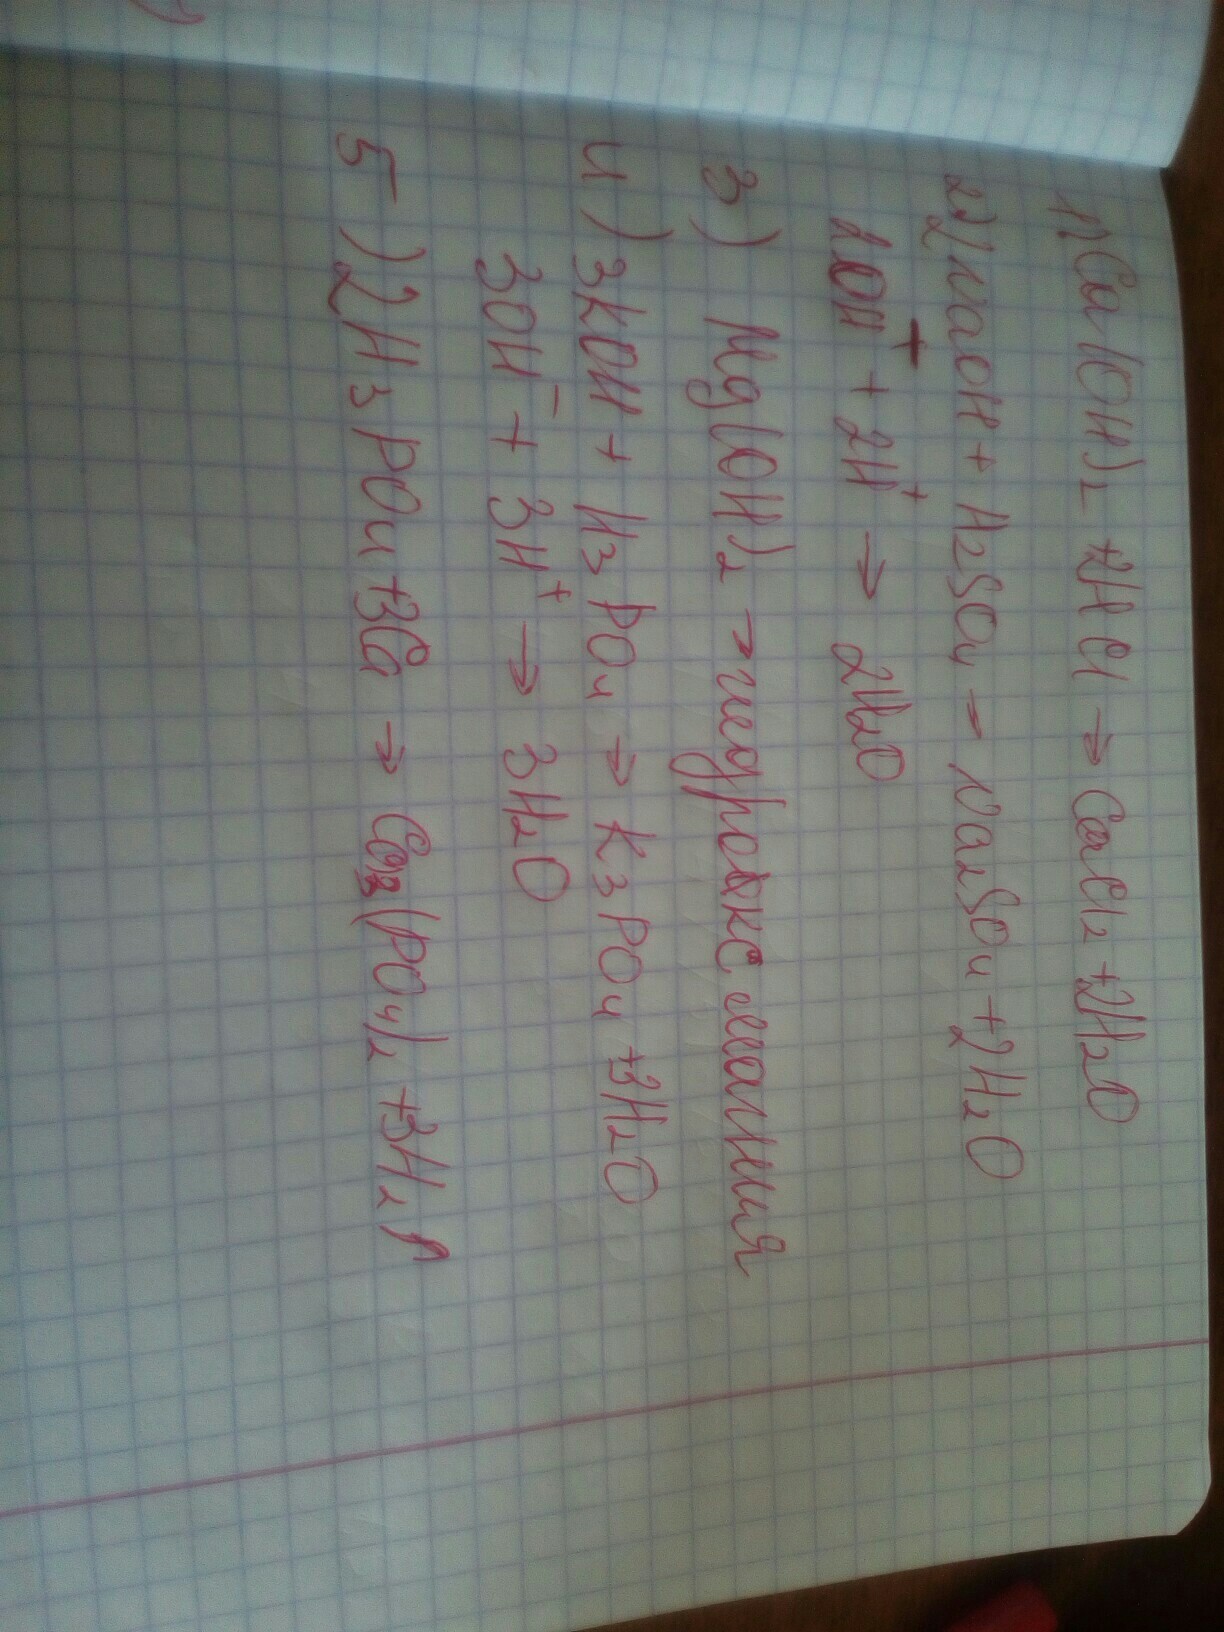 1) Ca(OH)₂ + 2HCl → CaCl₂ + 2H₂O
2) 2NaOH + H₂SO₄ → Na₂SO₄ + 2H₂O
2OH⁺ + 2H⁺ → 2H₂O
3) Mg(OH)₂ → гидрокс магния
4) 3KOH + H₃PO₄ → K₃PO₄ + 3H₂O
3OH⁻ + 3H⁺ → 3H₂O
5) 2H₃PO₄ + 3Ca → Ca₃(PO₄)₂ + 3H₂↑